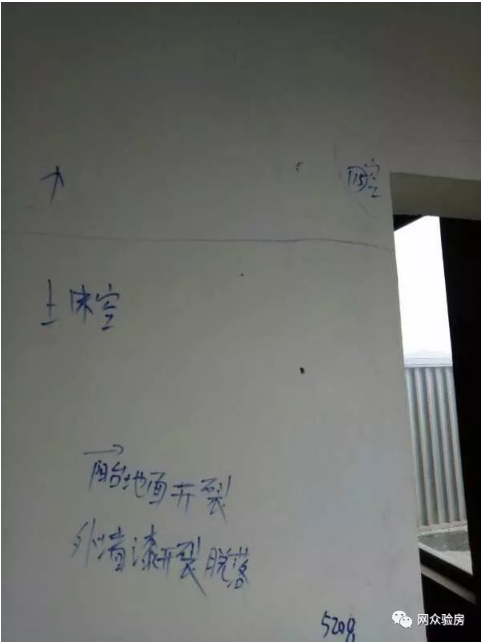 ↑
空
土 床空
→
阳台地面开裂
外墙漆开裂 脱落
5208
网众验房